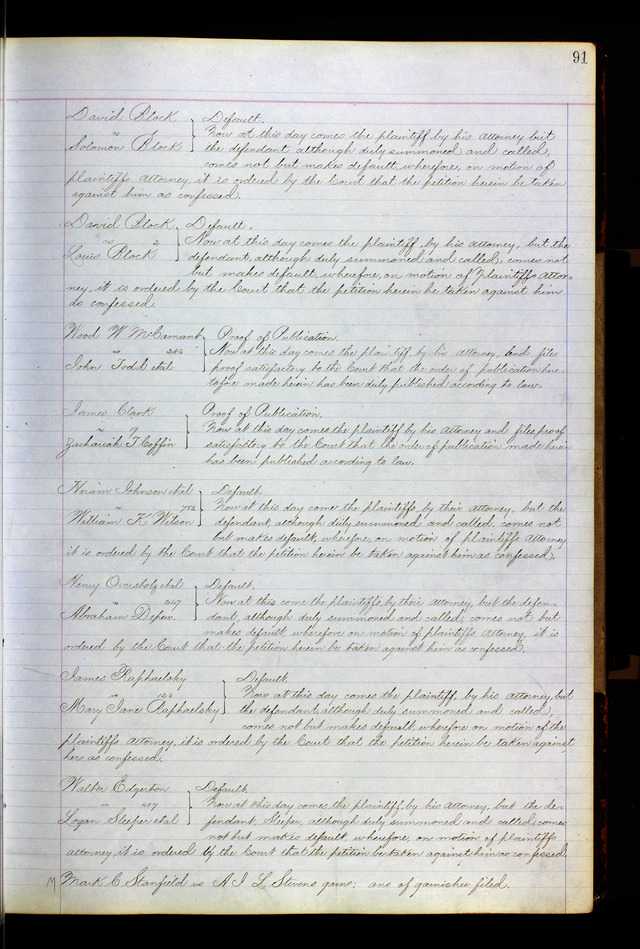 91
David Block } Default.
vs 1 Now at this day comes the plaintiff by his Attorney but
Solomon Block the defendant although duly summoned and called,
comes not but makes default, wherefore, on motion of
plaintiffs Attorney, it is ordered by the Court that the petition herein be taken
against him as confessed.
David Block } Default.
vs 2 Now at this day comes the plaintiff, by his attorney, but the
Louis Block defendant, although duly summoned and called, comes not
but makes default, wherefore, on motion of Plaintiffs Attor-
ney, it is ordered by the Court that the petition herein be taken against him
as confessed.
Wood W McCamant } Proof of Publication.
vs 383 Now at this day comes the plaintiff by his attorney, and files
John Todd etal proof satisfactory to the Court that the order of publication here-
tofore made herein has been duly published according to law.
James Clark } Proof of Publication.
vs 9 Now at this day comes the plaintiff by his Attorney and files proof
Zachariah T Coffin satisfactory to the Court that the order of publication made herein
has been published according to law.
Hiram Johnson etal } Default.
vs 752 Now at this day come the plaintiffs, by their attorney, but the
William K Wilson defendant, although duly summoned and called, comes not
but makes default, wherefore, on motion of plaintiffs Attorney
it is ordered by the Court that the petition herein be taken against him as confessed.
Henry Overstolz etal } Default,
vs 549 Now at this come the plaintiffs, by their attorney, but the defen-
Abraham Depew. dant, although duly summoned and called, comes not but
makes default, wherefore on motion of plaintiffs Attorney, it is
ordered by the Court that the petition herein be taken against him as confessed.
James Raphaelsky } Default.
vs 128 Now at this day comes the plaintiff, by his Attorney, but
Mary Jane Raphaelsky the defendant, although duly summoned and called,
comes not but makes default, wherefore on motion of the
plaintiffs Attorney, it is ordered by the Court that the petition herein be taken against
her as confessed.
Walter Edgerton } Default.
vs 407 Now at this day comes the plaintiff, by his Attorney, but the de-
Logan Sleeper etal fendant Sleeper, although duly summoned and called, comes
not but makes default, wherefore, on motion of plaintiffs
attorney, it is ordered by the Court that the petition be taken against him as confessed.
M Mark C Stanfield vs A I L Stevens garn: ans of garnishee filed.